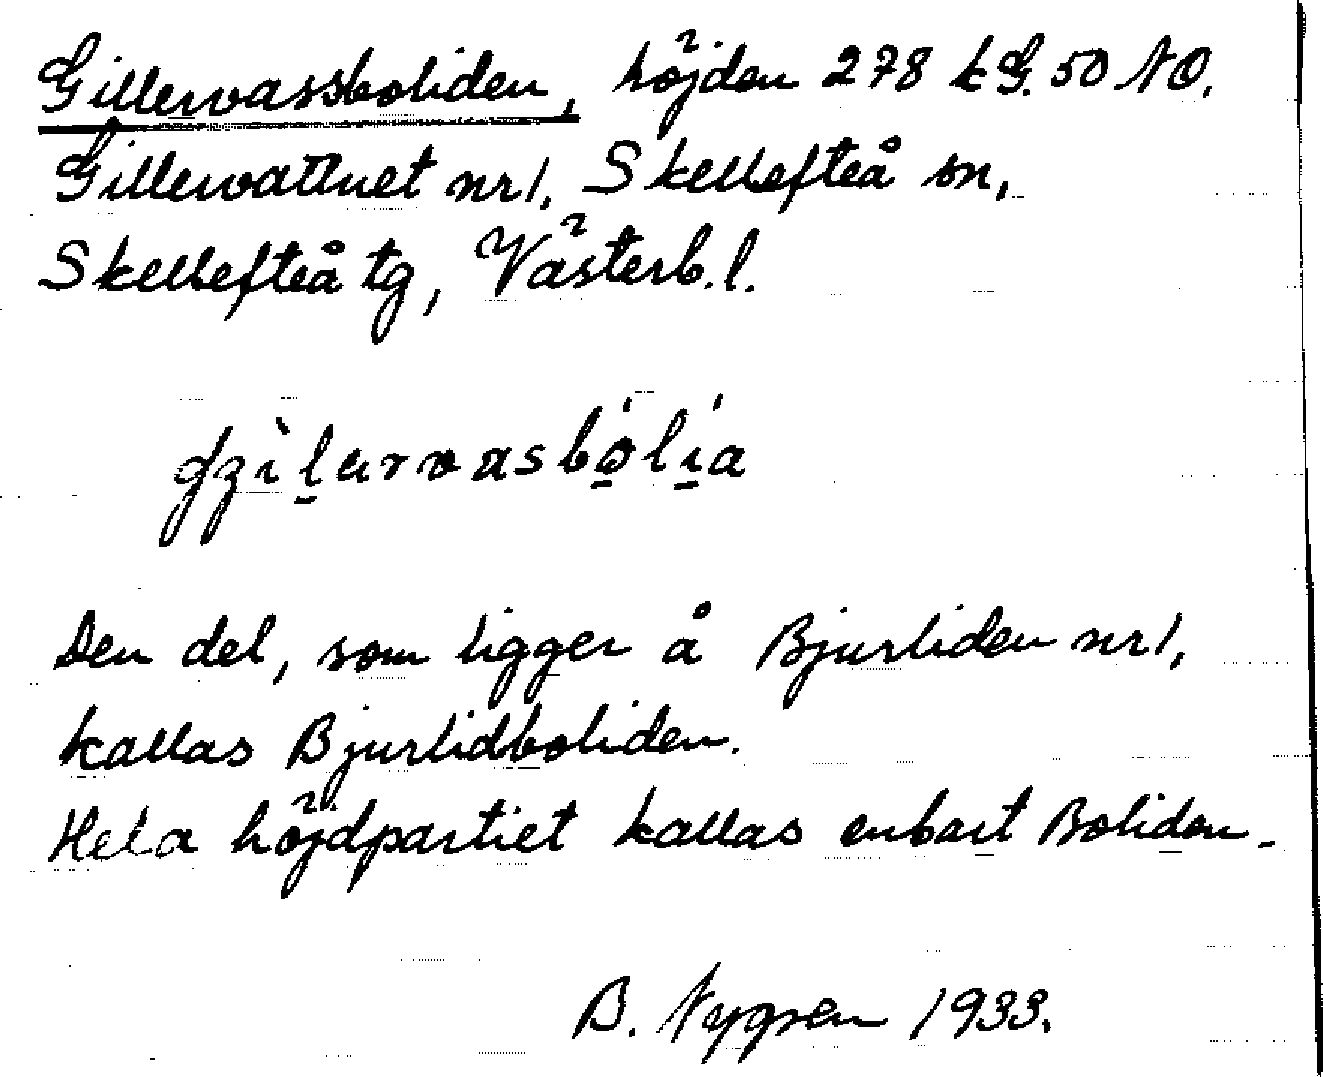 Gillervassboliden, höjden 278 k G. 50 NO.
Gillervattnet nr 1, Skellefteå sn,
Skellefteå tg, Västerb. l.
Den del, som ligger å Bjurliden nr 1,
kallas Bjurlidboliden.
Hela höjdpartiet kallas enbart Boliden.
B. Nygren 1933.